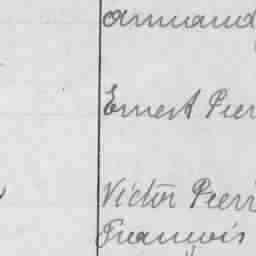 Armand
Ernest Pier
Victor Pierr
François